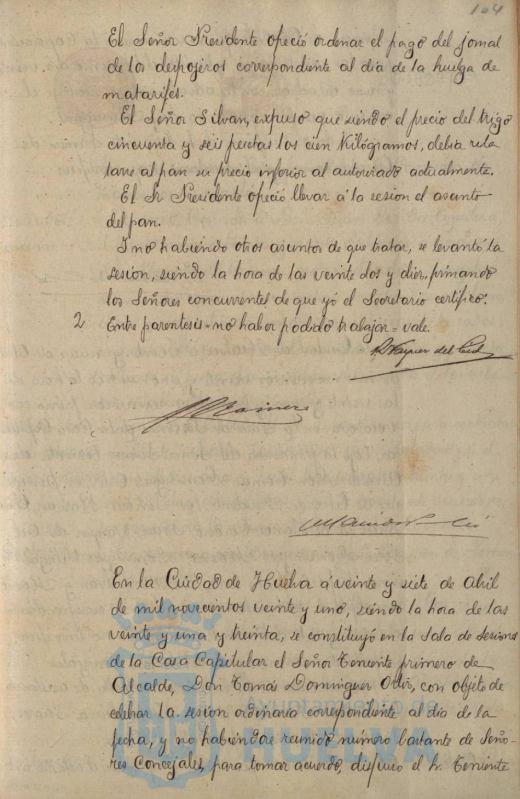 104
El Señor Presidente ofreció ordenar el pago del jornal
de los despojeros correspondiente al dia de la huelga de
matarifes.
El Señor Silvan, expuso que siendo el precio del trigo
cincuenta y seis pesetas los cien Kilógramos, debia rela
tarse al pan su precio inferior al autorizado actualmente.
El Sr. Presidente ofreció llevar á la sesion el asunto
del pan.
Y no habiendo otros asuntos de que tratar, se levantó la
sesion, siendo la hora de las veinte dos y diez, firmando
los Señores concurrentes de que yó el Secretario certifico.
2 Entre parentesis = no haber podido trabajar = vale.
En la Ciudad de Huelva á veinte y siete de Abril
de mil novecientos veinte y uno, siendo la hora de las
veinte y una y treinta, se constituyó en la Sala de Sesiones
de la Casa Capitular el Señor Teniente primero de
Alcalde, Don Tomás Dominguez Ortiz, con objeto de
celebrar la sesion ordinaria correspondiente al dia de la
fecha, y no habiendose reunido número bastante de Seño-
res Concejales, para tomar acuerdo, dispuso el Sr. Teniente
AYUNTAMIENTO DE
HUELVA